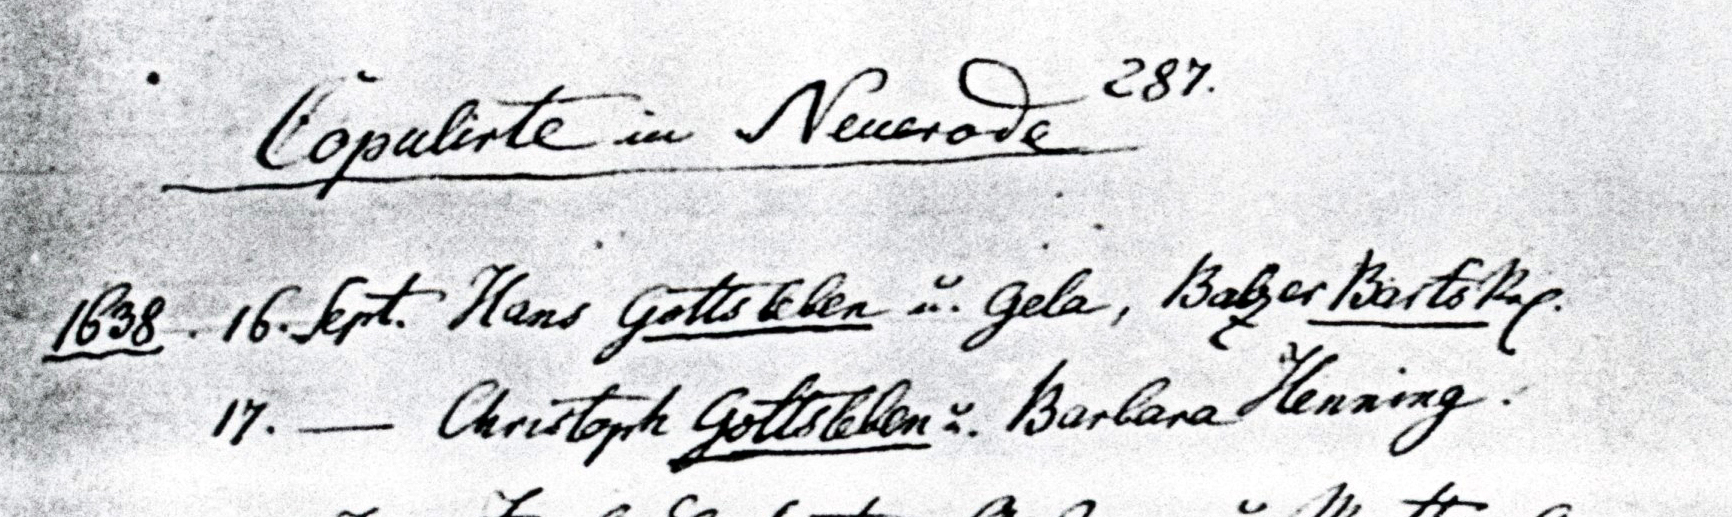 Copulirte in Neuerode 287.
1638. 16. Sept. Hans Gottsleben u. Gela, Balzer Barts
17. — Christoph Gottsleben u. Barbara Henning.